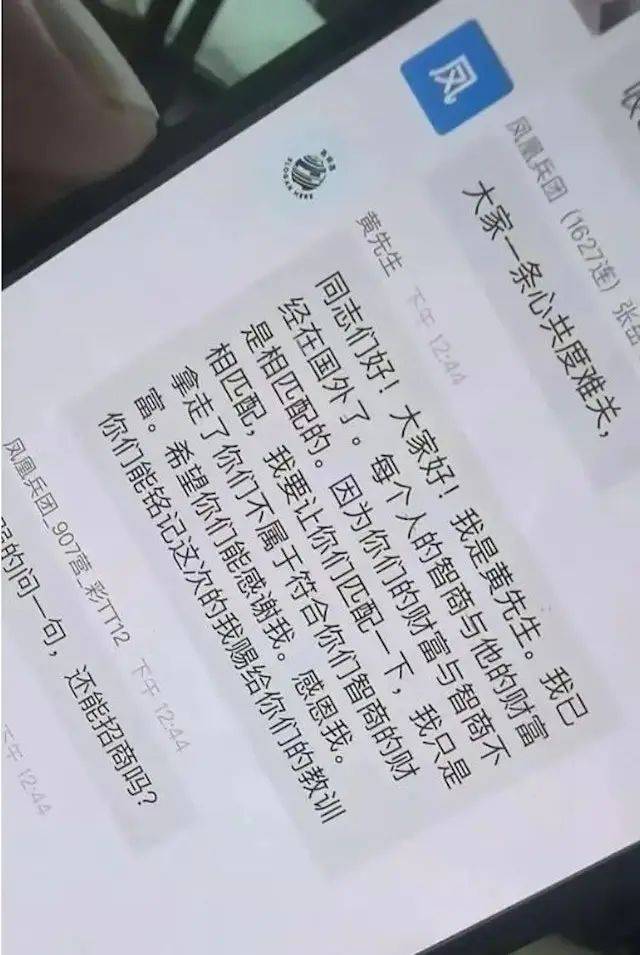 凤
凤凰兵团（1627连）张岳
大家一条心共度难关，
SLOGAN HERE
黄先生 下午 12:44
同志们好！大家好！我是黄先生。我已
经在国外了。每个人的智商与他的财富
是相匹配的。因为你们的财富与智商不
相匹配，我要让你们匹配一下，我只是
拿走了你们不属于符合你们智商的财
富。希望你们能感谢我。感恩我。
你们能铭记这次的我赐给你们的教训
凤凰兵团_907营_彩TT12 下午 12:44
的问一句，还能招商吗？
下午 12:44